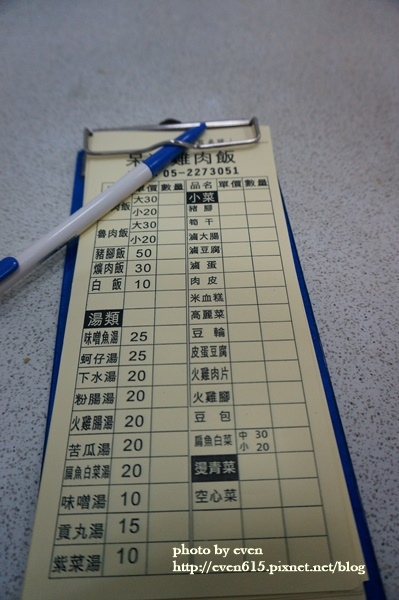 呆 雞肉飯
05-2273051
單價 數量 品名 單價 數量
肉飯 大30
小20
魯肉飯 大30
小20
豬腳飯 50
爌肉飯 30
白飯 10
湯類
味噌魚湯 25
蚵仔湯 25
下水湯 20
粉腸湯 20
火雞腸湯 20
苦瓜湯 20
扁魚白菜湯 20
味噌湯 10
貢丸湯 15
紫菜湯 10
小菜
豬腳
筍干
滷大腸
滷豆腐
滷蛋
肉皮
米血糕
高麗菜
豆輪
皮蛋豆腐
火雞肉片
火雞腳
豆包
扁魚白菜 中 30
小 20
燙青菜
空心菜
photo by even
http://even615.pixnet.net/blog